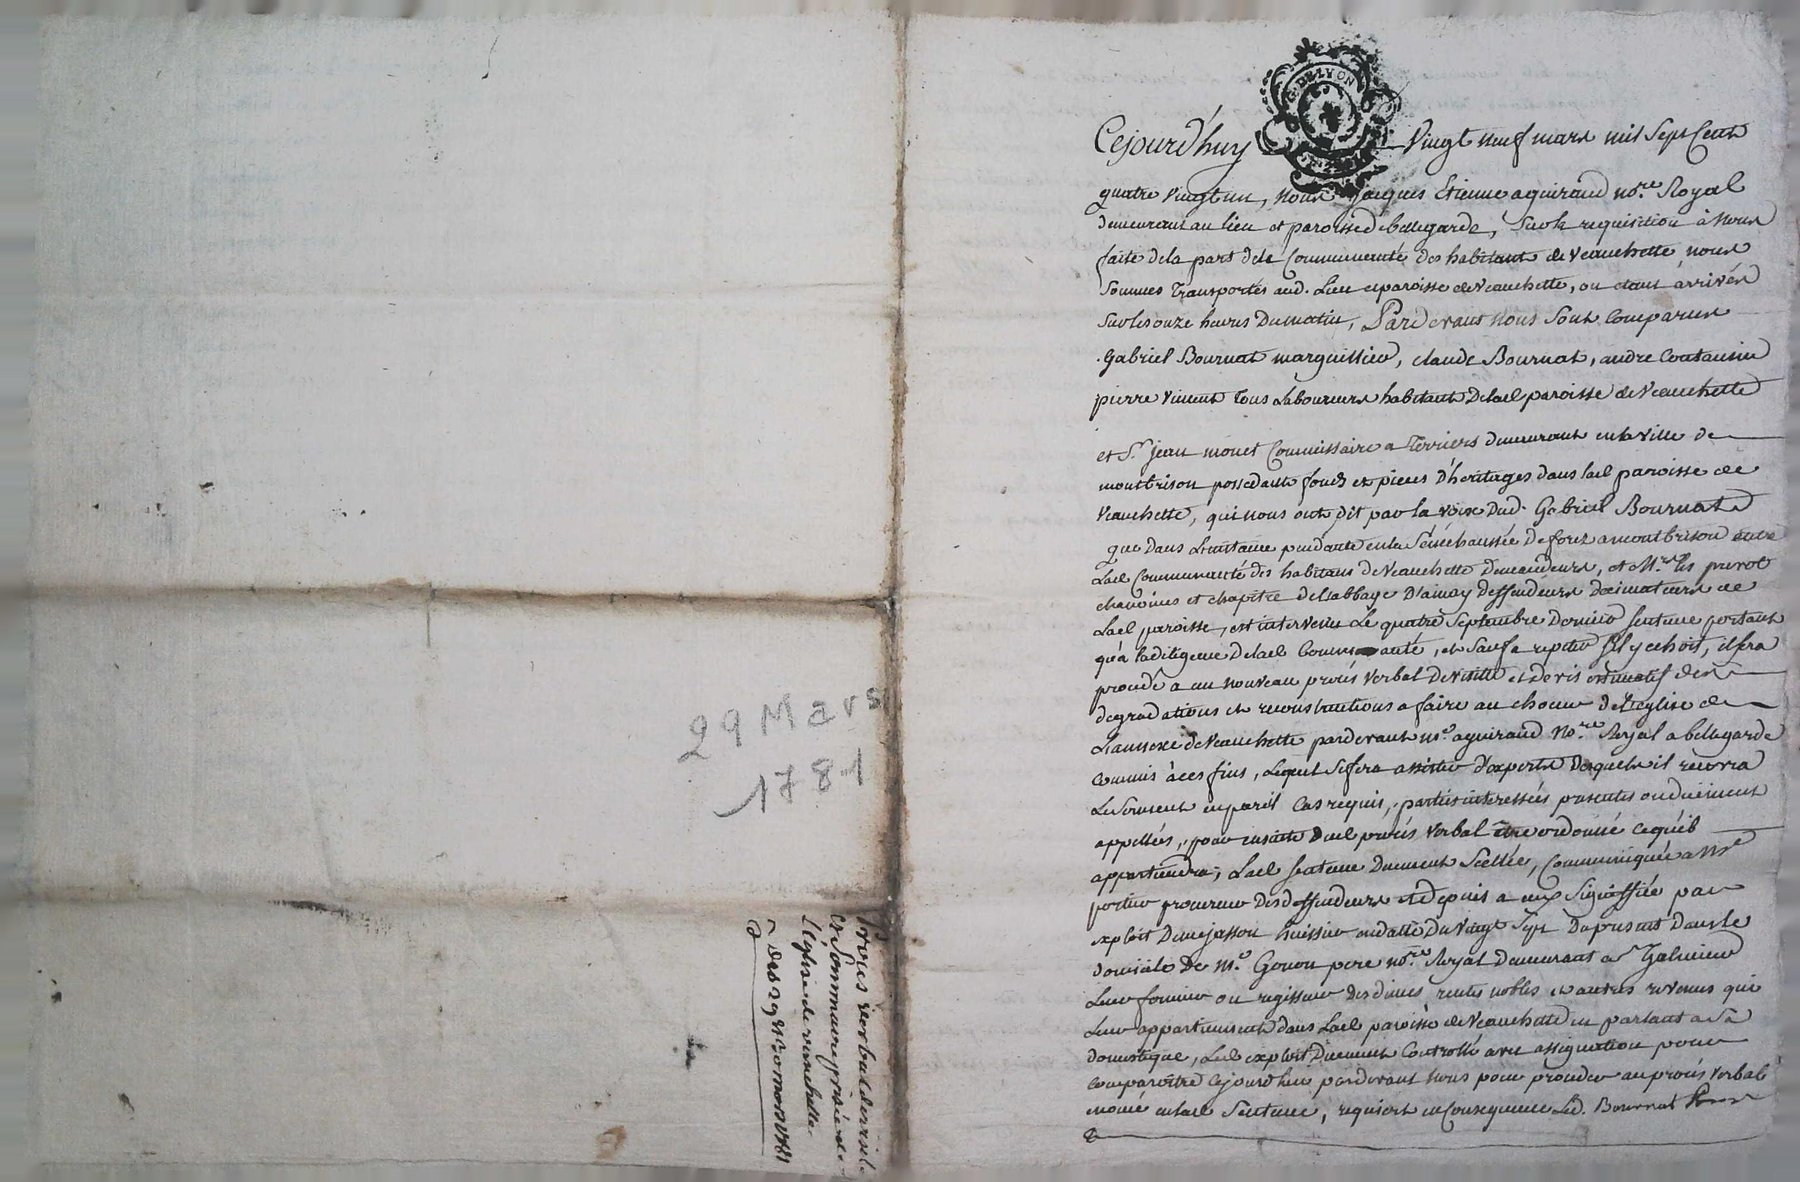 29 Mars
1781
Procès verbal de visite
et sommaire prisée de
l'église de veauchette
des 29 et 30 mars 1781
G. DE LYON
Cejourd'huy Vingt neuf mars mil sept Cent
quatre Vingt un, Nous Jacques Etienne aguiraud no.re Royal
demeurant au lieu et paroisse de bellegarde, sur la requisition à nous
faite de la part de la Communauté des habitants de Veauchette, nous
sommes transportés aud. Lieu et paroisse de Veauchette, ou étant arrivés
sur les onze heures du matin, Pardevant nous sont comparus
Gabriel Bournat marguillier, claude Bournat, andre
pierre Vincent tous Laboureurs habitants de lad. paroisse de Veauchette
et S.r jean monet Commissaire a terriers demeurant en la Ville de
montbrison possedants fonds et pieces d'heritages dans lad. paroisse de
Veauchette, qui nous ont dit par la voix dud. Gabriel Bournat
que dans L'instance pendante en la Sénéchaussée de forez a montbrison entre
Lad. Communauté des habitans de Veauchette demandeurs, et M.rs les prevot
chanoines et chapitre de l'abbaye D'ainay deffendeurs Decimateurs de
Lad. paroisse, est intervenu Le quatre Septembre Dernier sentence portant
qu'a la diligence de lad. Communauté, et sauf a repeter s'il y echoit, il sera
procedé a un nouveau procés verbal de visitte et devis estimatif des
degradations et reconstructions a faire au choeur de L'eglise de
L'annexe de Veauchette pardevant m.e aguiraud No.re Royal a bellegarde
Commis à ces fins, Lequel se fera assister d'experts desquels il recevra
Le serment en pareil Cas requis, parties interessées presentes ou duement
appellées, pour ensuite dud. procés verbal être ordonné ce qu'il
appartiendra; Lad. sentence Duement scellée, Communiquée a M.e
portier procureur des deffendeurs et depuis a eux signiffiée par
exploit De mejasson huissier en datte du Vingt Sept Du present Dans le
domicile De M.e Gonon pere no.re Royal Demeurant a S.t Galmier
Leur fermier ou regisseur des dimes, rentes nobles et autres revenus qui
Leur appartiennent dans Lad. paroisse de Veauchette en parlant a sa
domestique, Led. exploit Duement Controllé avec assignation pour
comparoître cejourd'hui pardevant nous pour proceder au procés verbal
enoncé en lad. Sentence, requiert en Consequence Led. Bournat